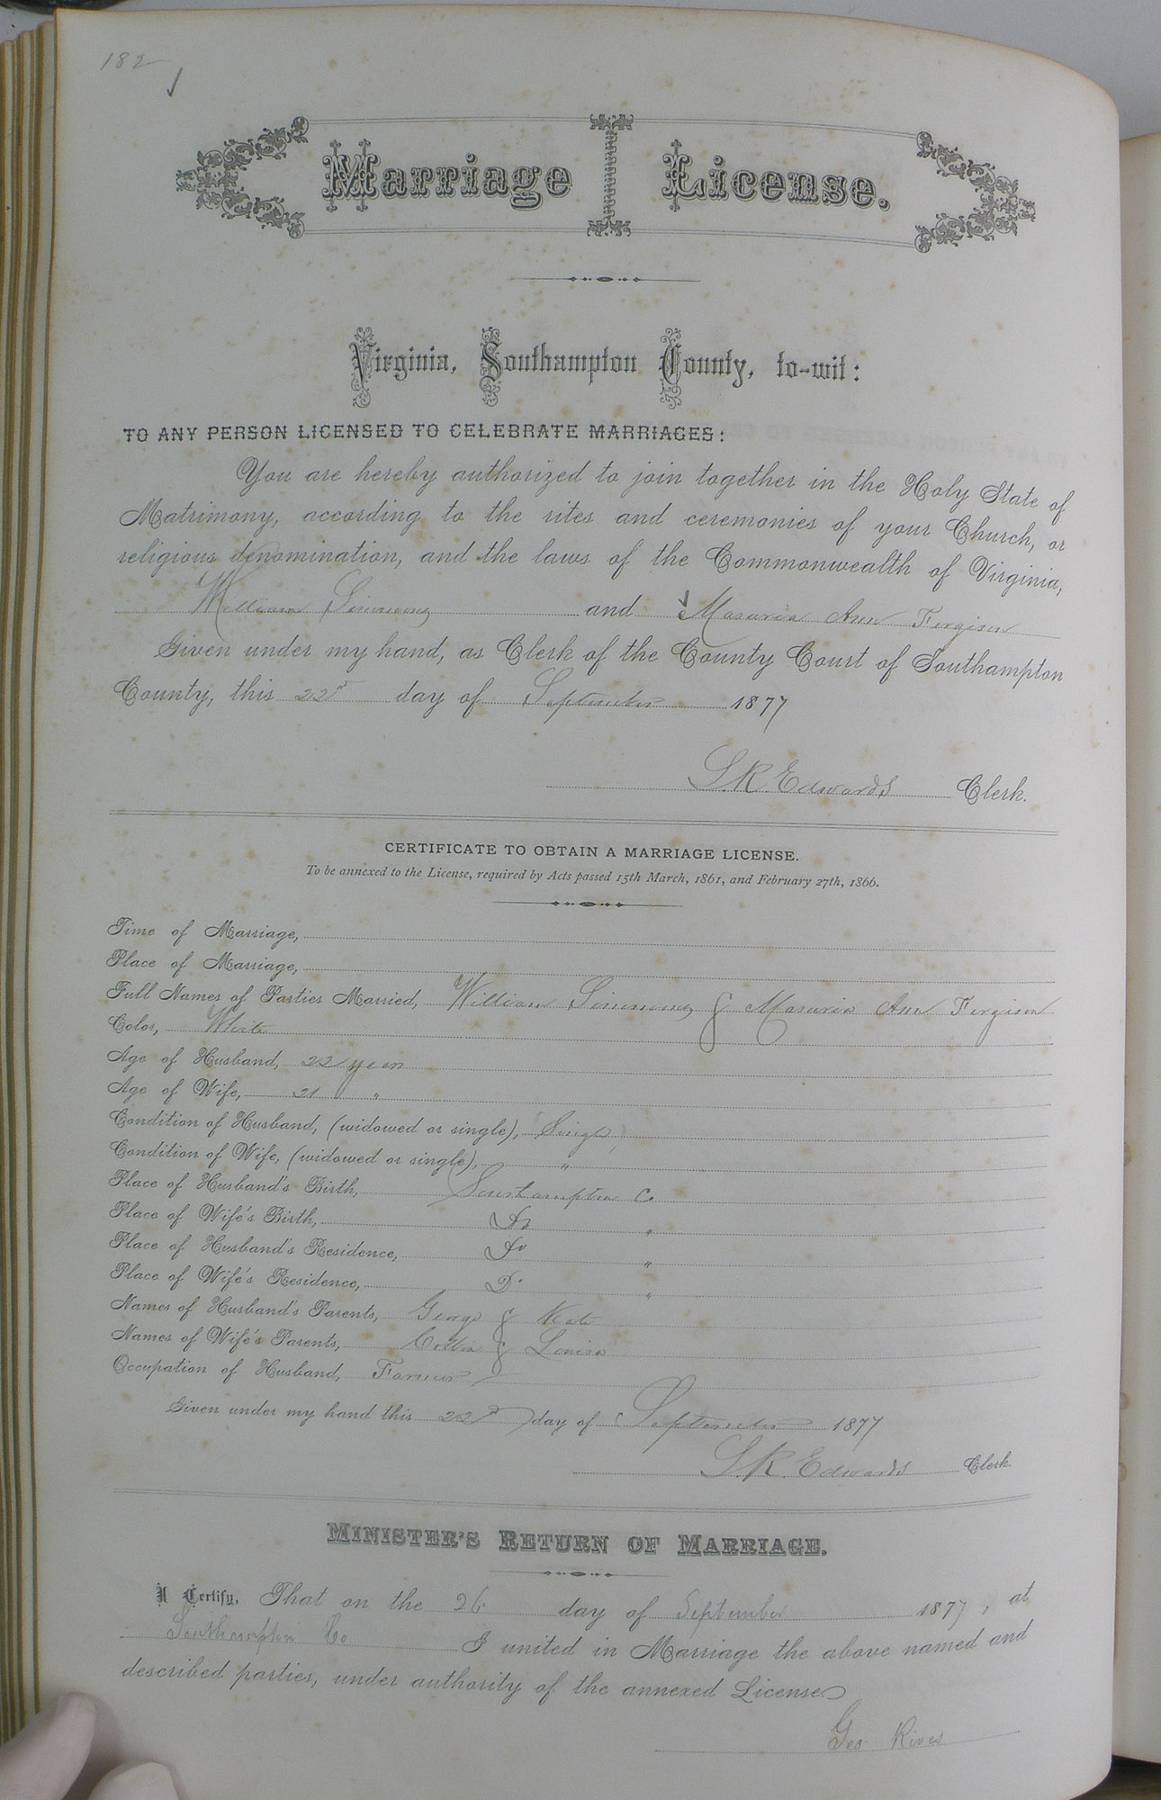 182
Marriage License.
Virginia, Southampton County, to-wit:
TO ANY PERSON LICENSED TO CELEBRATE MARRIAGES:
You are hereby authorized to join together in the Holy State of
Matrimony, according to the rites and ceremonies of your Church, or
religious denomination, and the laws of the Commonwealth of Virginia,
William Simmons and Masuria Ann Fergison
Given under my hand, as Clerk of the County Court of Southampton
County, this 22d day of September 1877
S.R. Edwards Clerk.
CERTIFICATE TO OBTAIN A MARRIAGE LICENSE.
To be annexed to the License, required by Acts passed 15th March, 1861, and February 27th, 1866.
Time of Marriage,
Place of Marriage,
Full Names of Parties Married, William Simmons & Masuria Ann Fergison
Color, White
Age of Husband, 22 years
Age of Wife, 21 "
Condition of Husband, (widowed or single), Single
Condition of Wife, (widowed or single), "
Place of Husband's Birth, Southampton Co
Place of Wife's Birth, Do "
Place of Husband's Residence, Do "
Place of Wife's Residence, Do "
Names of Husband's Parents, George & Kate
Names of Wife's Parents, & Louisa
Occupation of Husband, Farmer
Given under my hand this 22d day of September 1877
S.R. Edwards Clerk.
MINISTER'S RETURN OF MARRIAGE.
I Certify, That on the 26 day of September 1877, at
Southampton Co I united in Marriage the above named and
described parties, under authority of the annexed License
Geo Rives